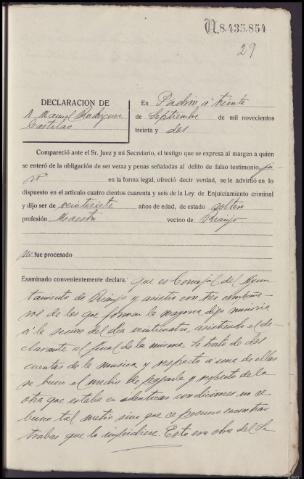 N.8.435.854
29
DECLARACION DE
D. Manuel Rodriguez
Castelao
En Padron a treinta
de Septiembre de mil novecientos
treinta y dos
Compareció ante el Sr. Juez y mi Secretario, el testigo que se expresa al margen a quien
se enteró de la obligación de ser veraz y penas señaladas al delito de falso testimonio, ju-
ró en la forma legal, ofreció decir verdad, se le advirtió en lo
dispuesto en el artículo cuatro cientos cuarenta y seis de la Ley de Enjuiciamiento criminal
y dijo ser de veintisiete años de edad, de estado soltero
profesión Maestro vecino de Araujo
no fue procesado
Examinado convenientemente declara: que es Concejal del Ayun-
tamiento de y asistio con tres
de los que forman la mayoria digo minoria
a la sesion del dia veinticuatro, asistiendo el de-
clarante al final de la misma. Se trató de dos
cuentas de la musica y respecto a una de ellas
se buscó el medio de pagarla y respecto de la
otra que estaba en identicas condiciones no se
buscó tal medio sino que se
trabas que lo impidiese. Esto era obra del S.